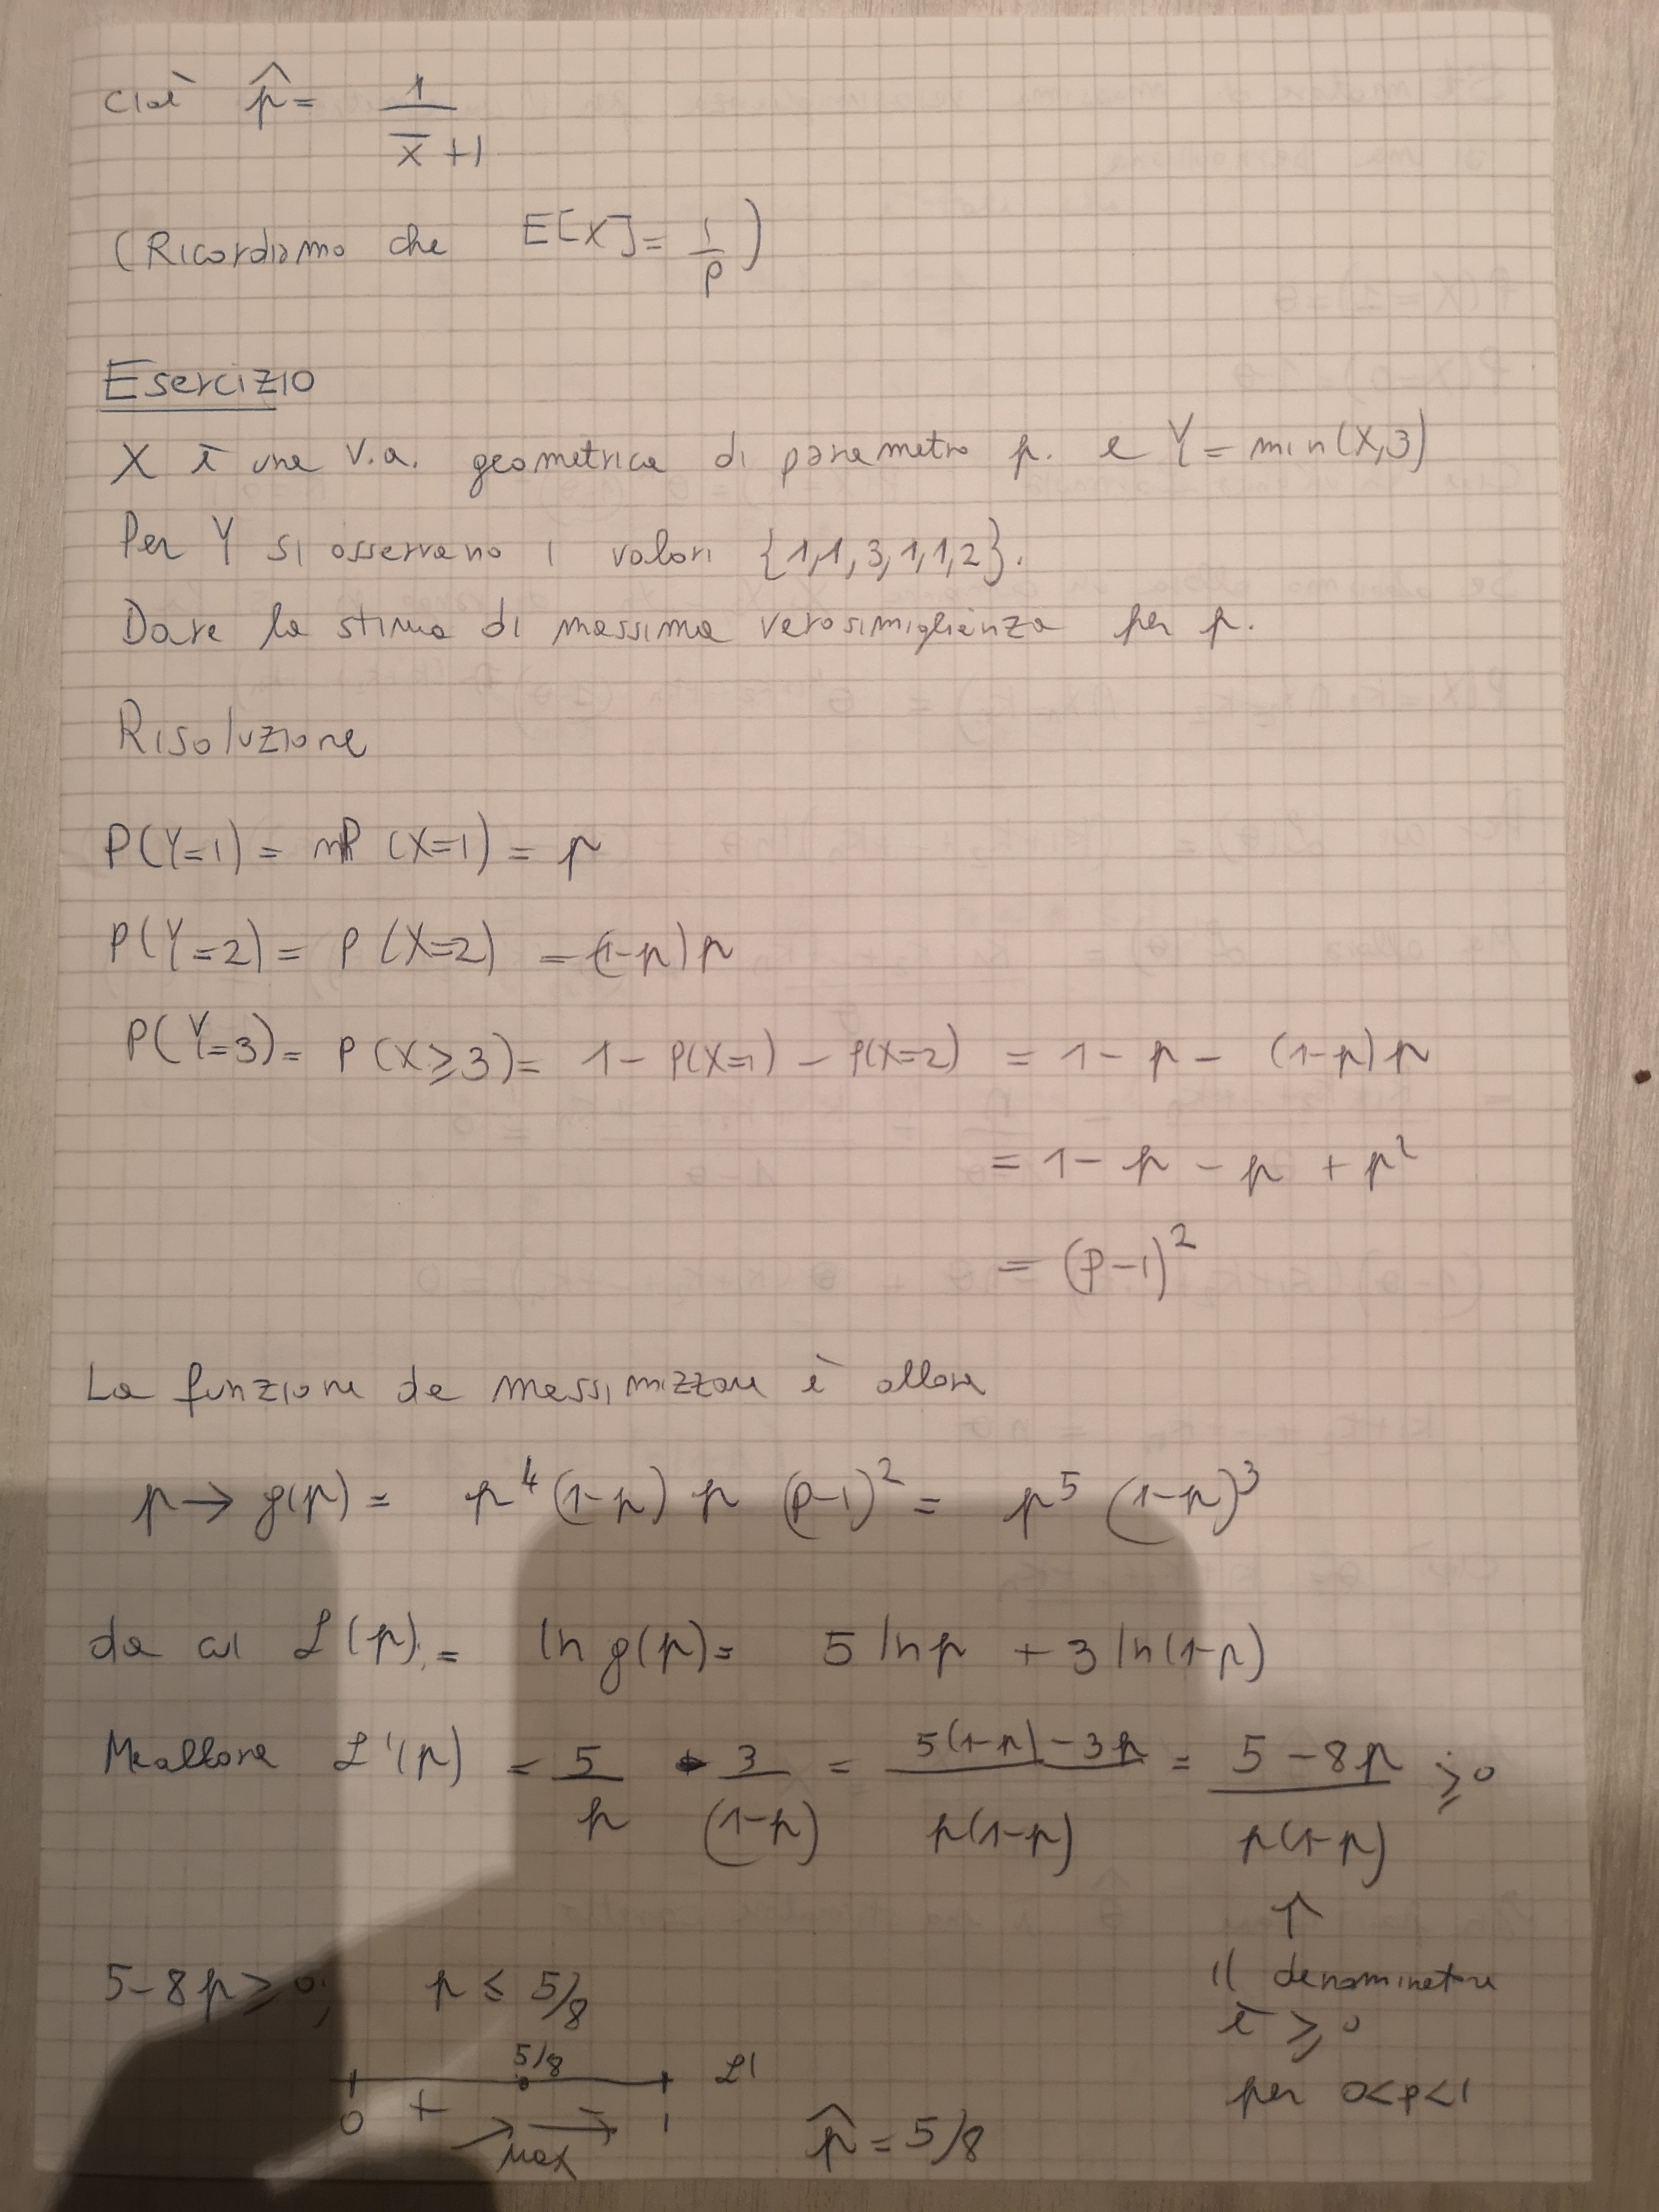 Cioè p̂ = 1/(x̄+1)
(Ricordiamo che E[X] = 1/p)
Esercizio
X è una v.a. geometrica di parametro p. e Y = min(X,3)
Per Y si osservano i valori {1,1,3,1,1,2}.
Dare la stima di massima verosimiglianza per p.
Risoluzione
P(Y=1) = P(X=1) = p
P(Y=2) = P(X=2) = (1-p)p
P(Y=3) = P(X⩾3) = 1 - P(X=1) - P(X=2) = 1 - p - (1-p)p
= 1 - p - p + p²
= (p-1)²
La funzione da massimizzare è allora
p → g(p) = p⁴(1-p) p (p-1)² = p⁵ (1-p)³
da cui ℒ(p) = ln g(p) = 5 ln p + 3 ln(1-p)
Ma allora ℒ'(p) = 5/p - 3/(1-p) = (5(1-p) - 3p)/(p(1-p)) = (5 - 8p)/(p(1-p)) ⩾ 0
↑
il denominatore
è ⩾ 0
per 0<p<1
5 - 8p ⩾ 0; p ≤ 5/8
5/8 ℒ'
0 + - 1
Max
p̂ = 5/8